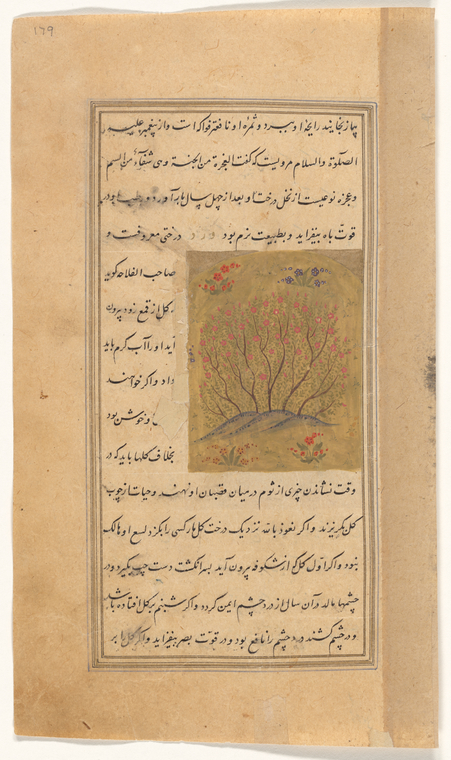 ۱۲۹
پیاز بجایند رایحهٔ او ببرد و ثمرهٔ او نافعتر فواکه است و از پیغمبر علیه
الصلوة والسلام مرویست که گفت العجوة من الجنة وهی شفآء من السم
وعجوه نوعیست از نخل درخت او بعد از چهل سال بار آورد و بود
قوّت باه بیفزاید و بطبیعت نرم بود ورد درختی معروفست و
صاحب الفلاحه کوید
کل از قمع زود بیرون
آید او را آب کرم باید
داد و اکر خواهند
و خوش بود
بخلاف کلها باید که در
وقت نشاندن چیزی از ثوم در میان قضبان او نهند و حیات از چوب
کل بکریزند و اکر نعوذ بالله نزدیک درخت کل مار کسی را بکزد لسع او هالک
نبود و اکر اوّل کل که از شکوفه بیرون آید بسه انکشت دست چپ بکیرد و در
چشمها مالد در آن سال از درد چشم ایمن کردد و اکر شبنم بر کل افتاده باشد
و در چشم کشند درد چشم را نافع بود و در قوّت بصر بیفزاید و اکر کل را بر